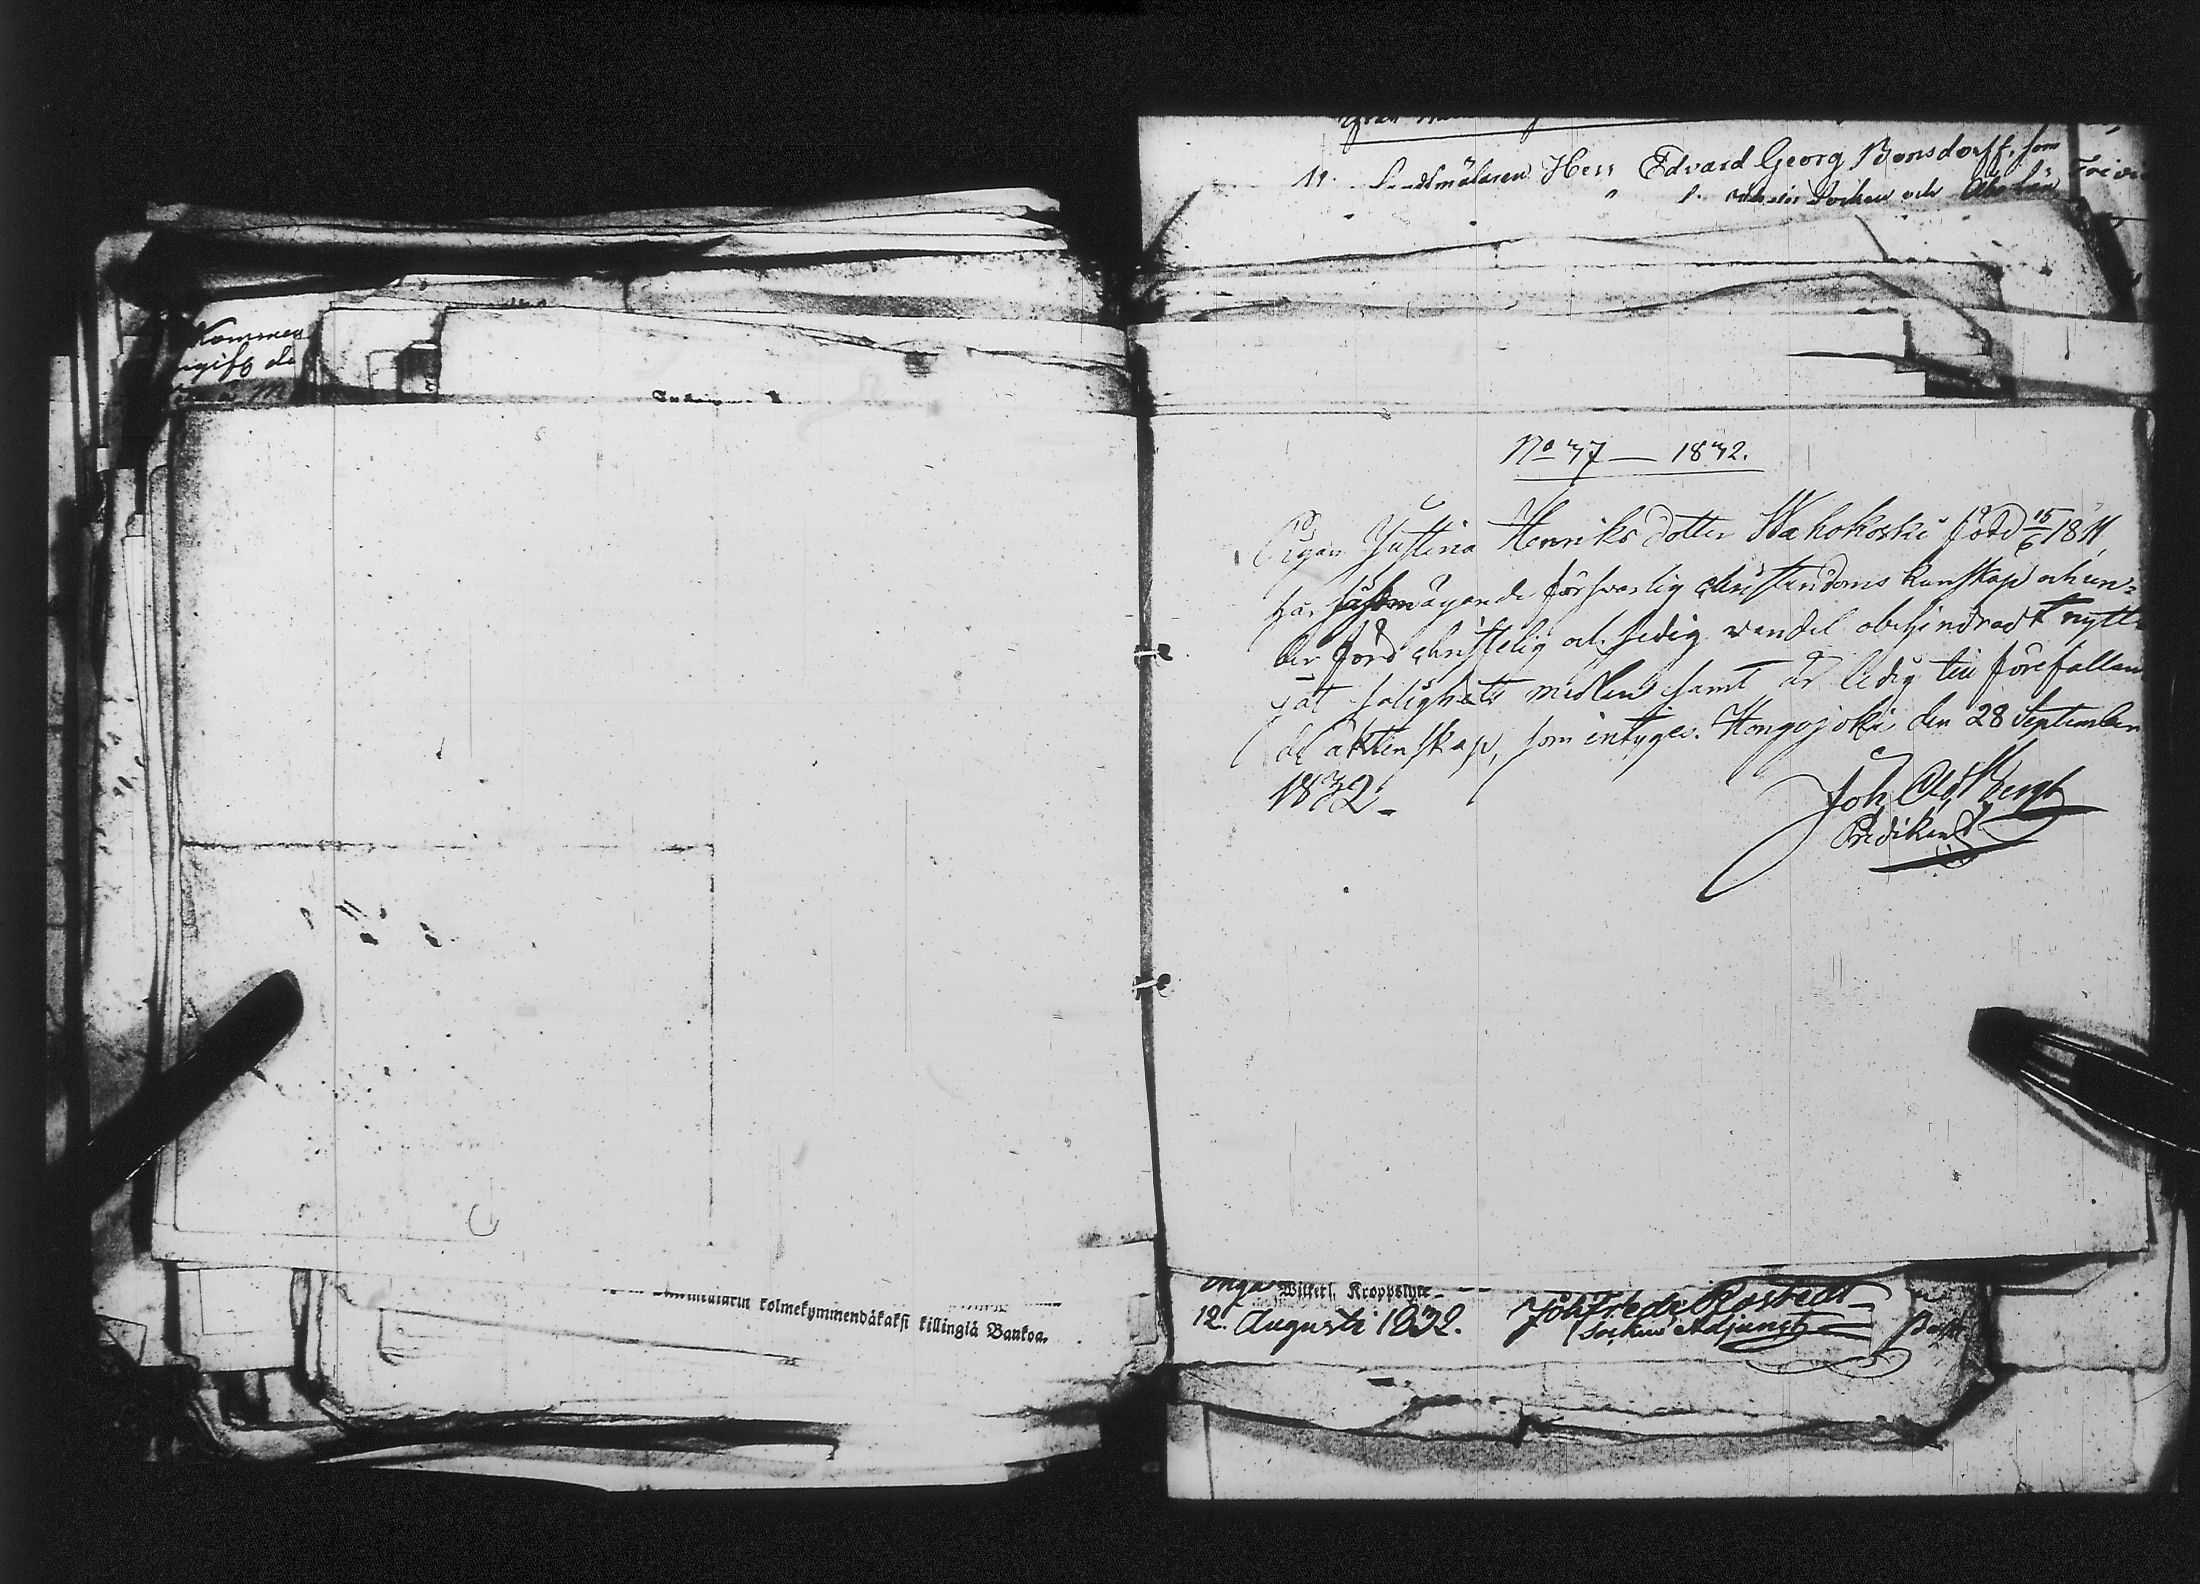 Kommen
ngift de
kolmekymmendäkaksi killingiä Bankoa.
11. Landtmätaren Herr Edvard Georg Bonsdorff, som
Socken och Åbo Län
No 37 — 1832.
Pigan Justina Henriks dotter Wahokoski född 15/6 1811,
har ägande försvarlig christendoms kunskap och un-
der förd christelig och sedig vandel obehindradt nytt-
jat salighets medlen samt är ledig till förefallan
de äktenskap, som intyges. Hongojoki den 28 September
1832.
Joh. Ad. Bergh
Predikant
inga Wilkers. Kroppslyte
12. Augusti 1832. Joh Fredr Rostedt
Sockne Adjunct